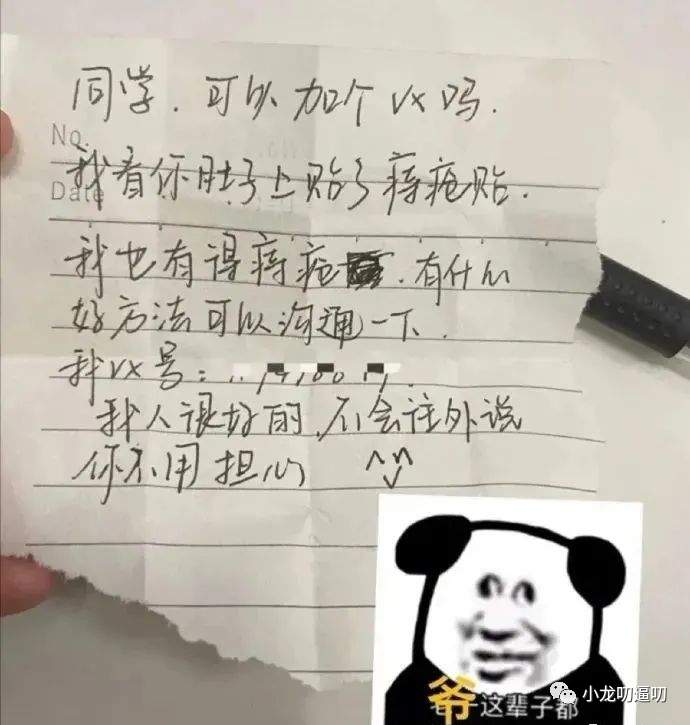 同学.可以加个vx吗.
No.
我看你肚子上贴了痔疮贴.
Date
我也有得痔疮.有什么
好方法可以沟通一下.
我vx号:
我人很好的,不会往外说
你不用担心 ^ ^
爷这辈子都
小龙叨逼叨